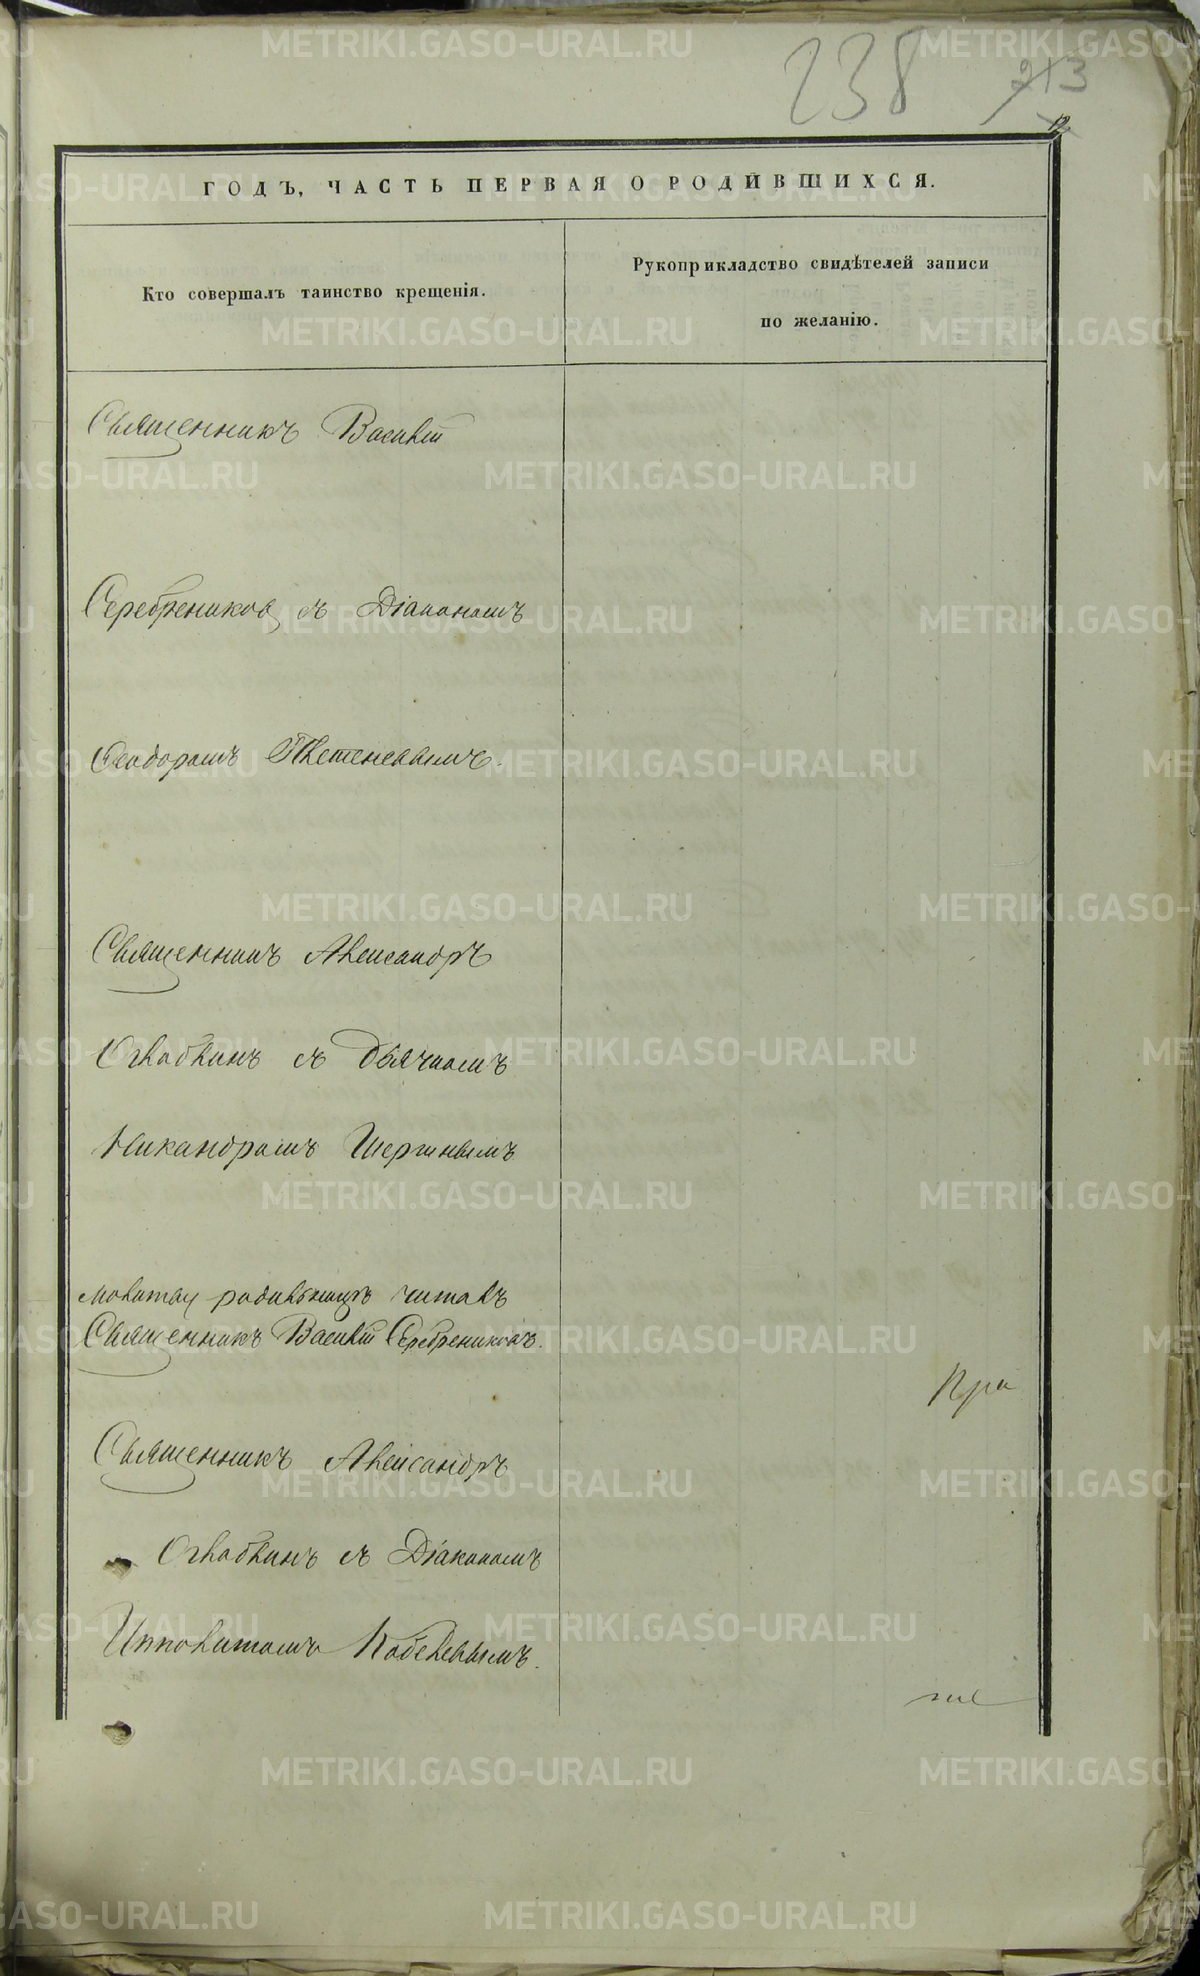 238 213
12
ГОДЪ, ЧАСТЬ ПЕРВАЯ О РОДИВШИХСЯ.
Кто совершалъ таинство крещенія.
Рукоприкладство свидѣтелей записи
по желанію.
Священникъ Василій
Серебрениковъ съ Діакономъ
Ѳеодоромъ Плетеневымъ.
Священникъ Александръ
Оглоблинъ съ Дьячкомъ
Никандромъ Шергинымъ
молитву родильницѣ читалъ
Священникъ Василій Серебрениковъ.
При
Священникъ Александръ
Оглоблинъ съ Діакономъ
Ипполитомъ Кобелевымъ.
METRIKI.GASO-URAL.RU